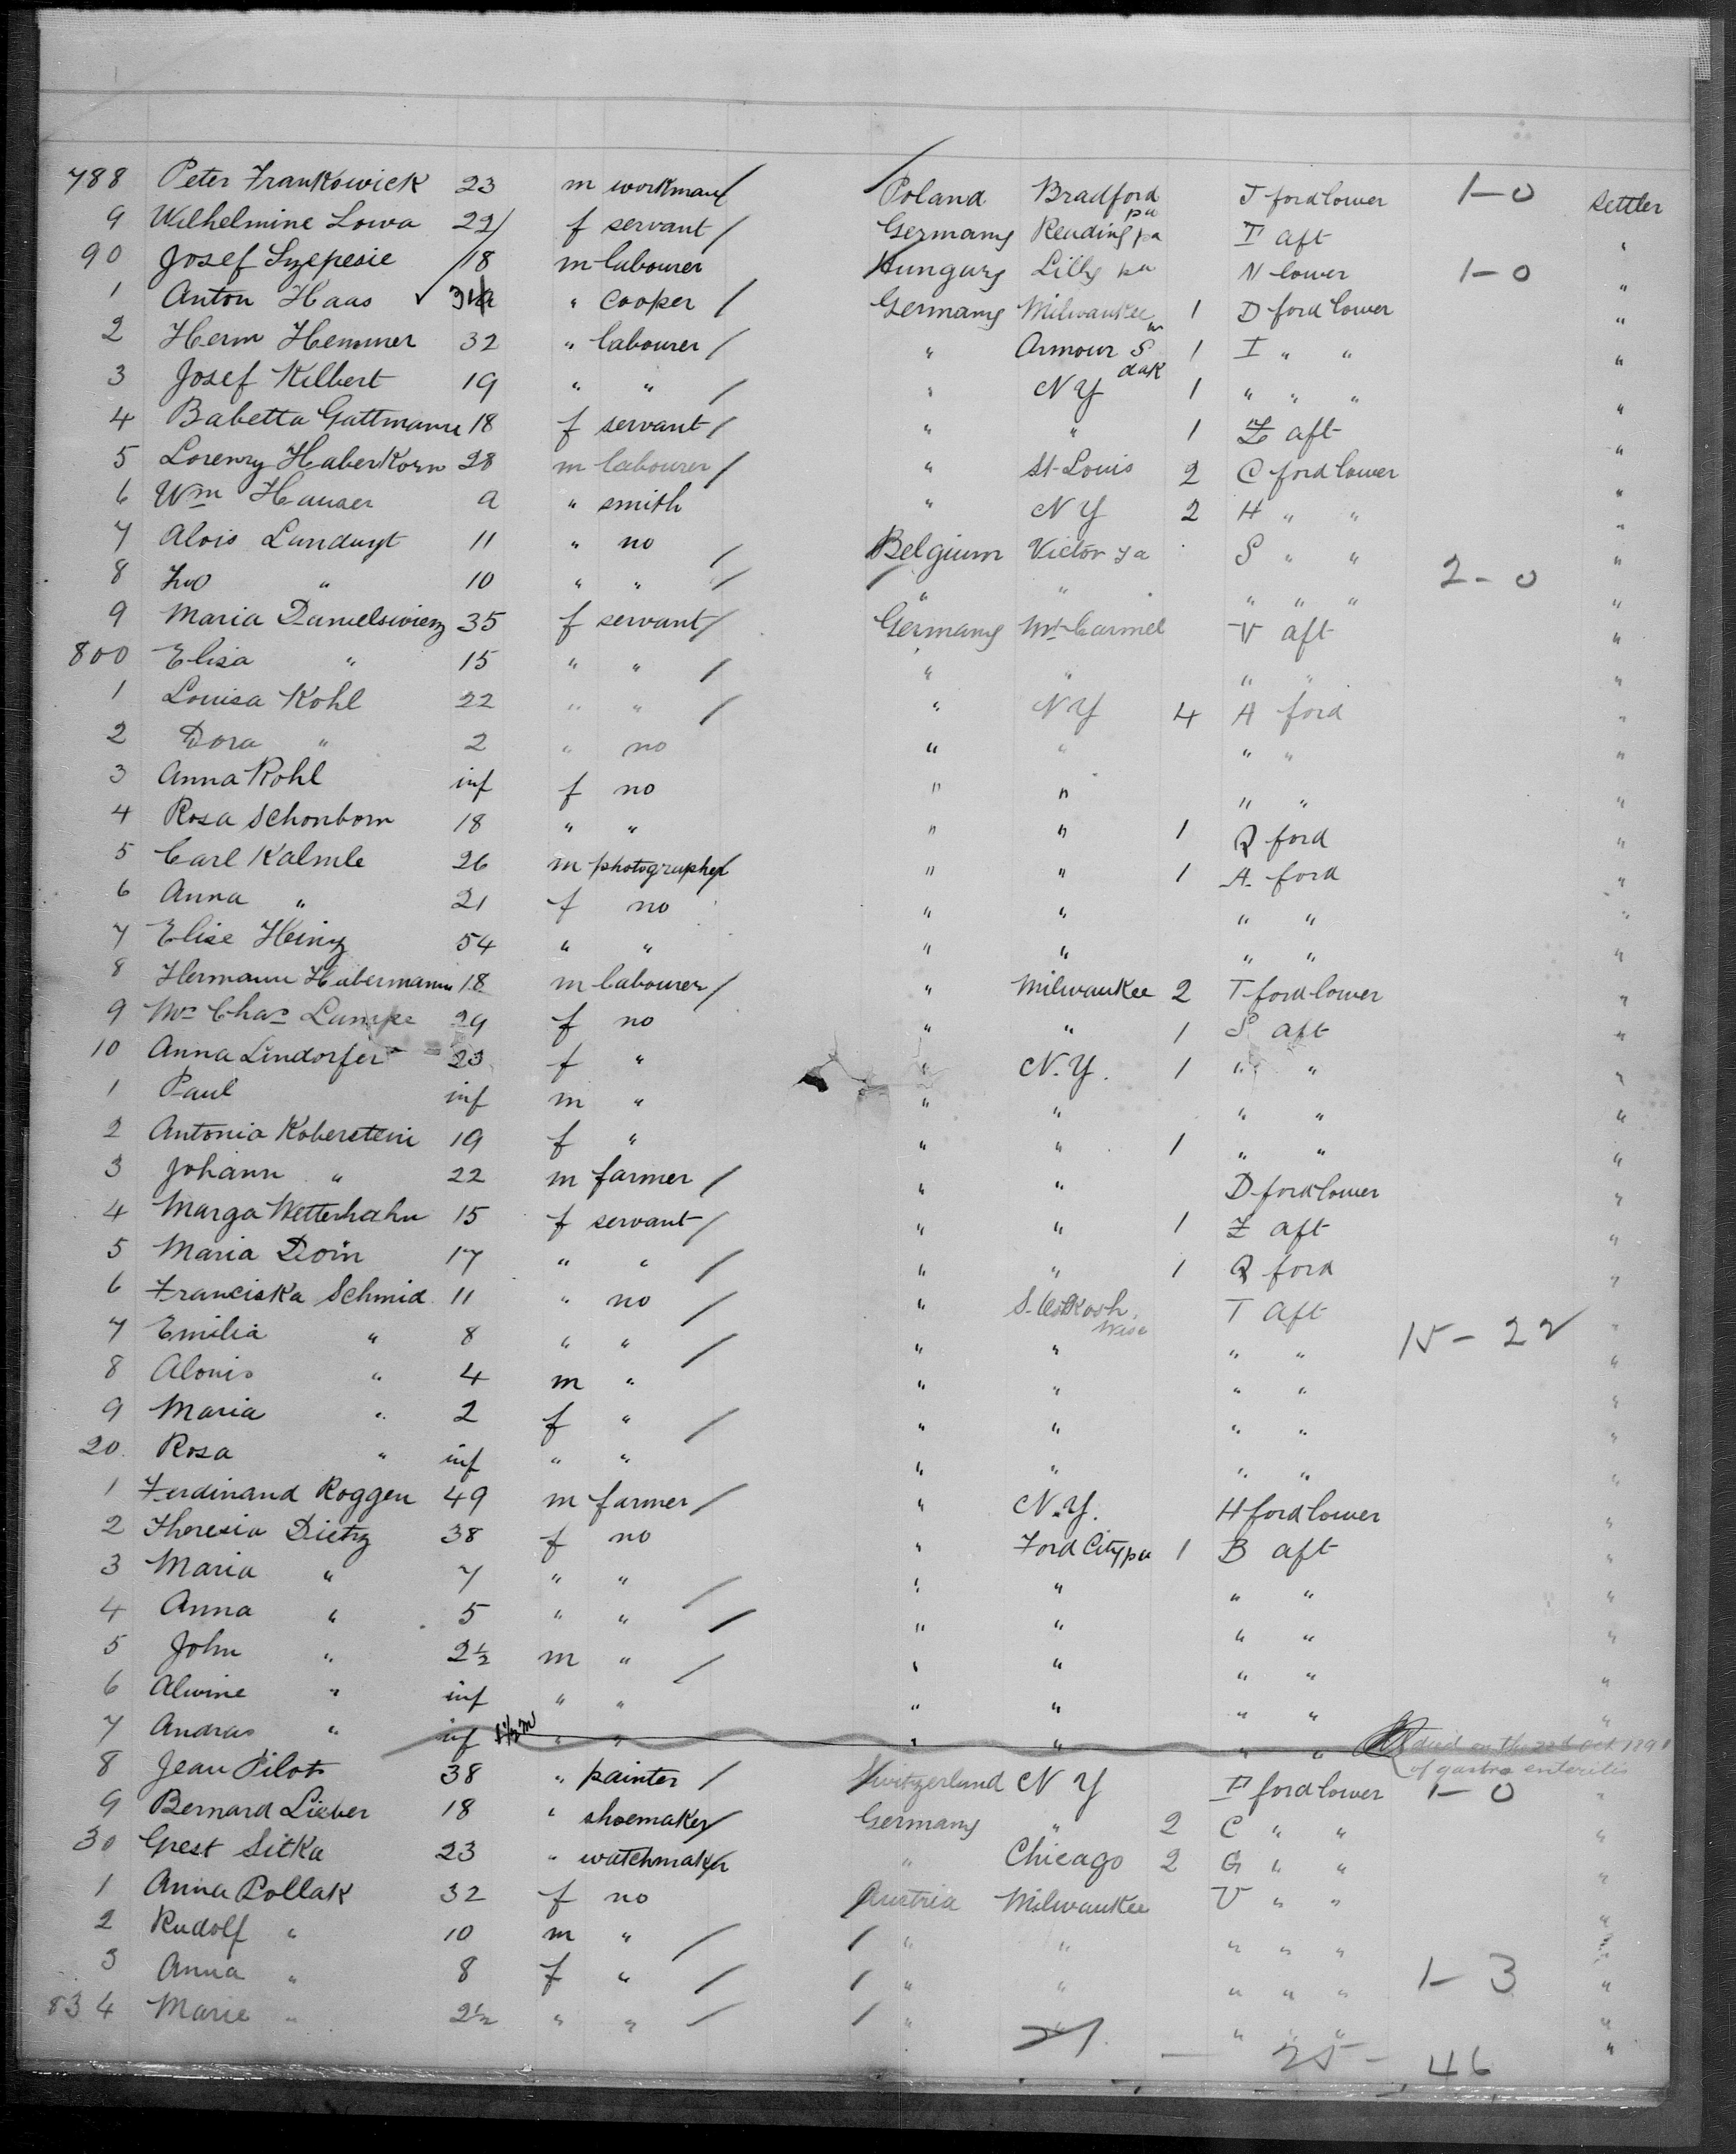 788 Peter Frankowick 23 m workman / Poland Bradford pa T ford lower 1-0 settler
9 Wilhelmine Lowa 22 / f servant / Germany Reading pa T aft "
90 Josef 18 m labourer Hungary Lilly pa N lower 1-0 "
1 Anton Haas ✓ " cooper / Germany Milwaukee 1 D ford lower "
2 Herm Hemmer 32 " labourer / " Armour S dak 1 I " " "
3 Josef Kilbert 19 " " / " NY 1 " " " "
4 Babetta Gattmann 18 f servant / " " 1 Z aft "
5 Lorenz Haberkorn 28 m labourer / " St Louis 2 C ford lower "
6 Wm Hauser a " smith " NY 2 H " " "
7 Alois Landuyt 11 " no / Belgium Victor S " " "
8 Ivo " 10 " " / " " " " " 2-0 "
9 Maria 35 f servant / Germany Mt Carmel V aft "
800 Elisa " 15 " " / " " " " "
1 Louisa Kohl 22 " " / " NY 4 A ford "
2 Dora " 2 " no " " " " "
3 Anna Kohl inf f no " " " " "
4 Rosa Schonborn 18 " " " " 1 Q ford "
5 Carl Kalmle 26 m photographer / " " 1 A ford "
6 Anna " 21 f no " " " " "
7 Elise Heinz 54 " " " " " " "
8 Hermann Habermann 18 m labourer / " Milwaukee 2 T ford lower "
9 Mrs Chas Lampe 29 f no " " 1 S aft "
10 Anna Lindorfer 23 f " " N.Y. 1 " " "
1 Paul inf m " " " " " "
2 Antonia Koberstein 19 f " " " 1 " " "
3 Johann " 22 m farmer / " " D ford lower "
4 Marga Wetterhahn 15 f servant / " " 1 Z aft "
5 Maria Dorn 17 " " / " " 1 Q ford "
6 Franciska Schmid 11 " no / " S. Oskosh Wisc T aft "
7 Emilia " 8 " " / " " " " 15-22 "
8 Alouis " 4 m " " " " " "
9 Maria " 2 f " / " " " " "
20 Rosa " inf " " " " " " "
1 Ferdinand Roggen 49 m farmer / " N.Y. H ford lower "
2 Theresia Dietz 38 f no " Ford City pa 1 B aft "
3 Maria " 7 " " / " " " " "
4 Anna " 5 " " / " " " " "
5 John " 2½ m " / " " " " "
6 Alwine " inf " " " " " " "
7 Andras " inf " " " " " " died on the 22d Oct 1891
of gastro enteritis
8 Jean Pilot 38 " painter / Switzerland NY ford lower 1-0 "
9 Bernard Lieber 18 " shoemaker / Germany " 2 C " " "
30 Sitka 23 " watchmaker / " Chicago 2 G " " "
1 Anna Pollak 32 f no Austria Milwaukee V " " "
2 Rudolf " 10 m " / / " " " " " "
3 Anna " 8 f " / / " " " " " 1-3 "
834 Marie " 2½ " " / / " " " " " "
25-46 "